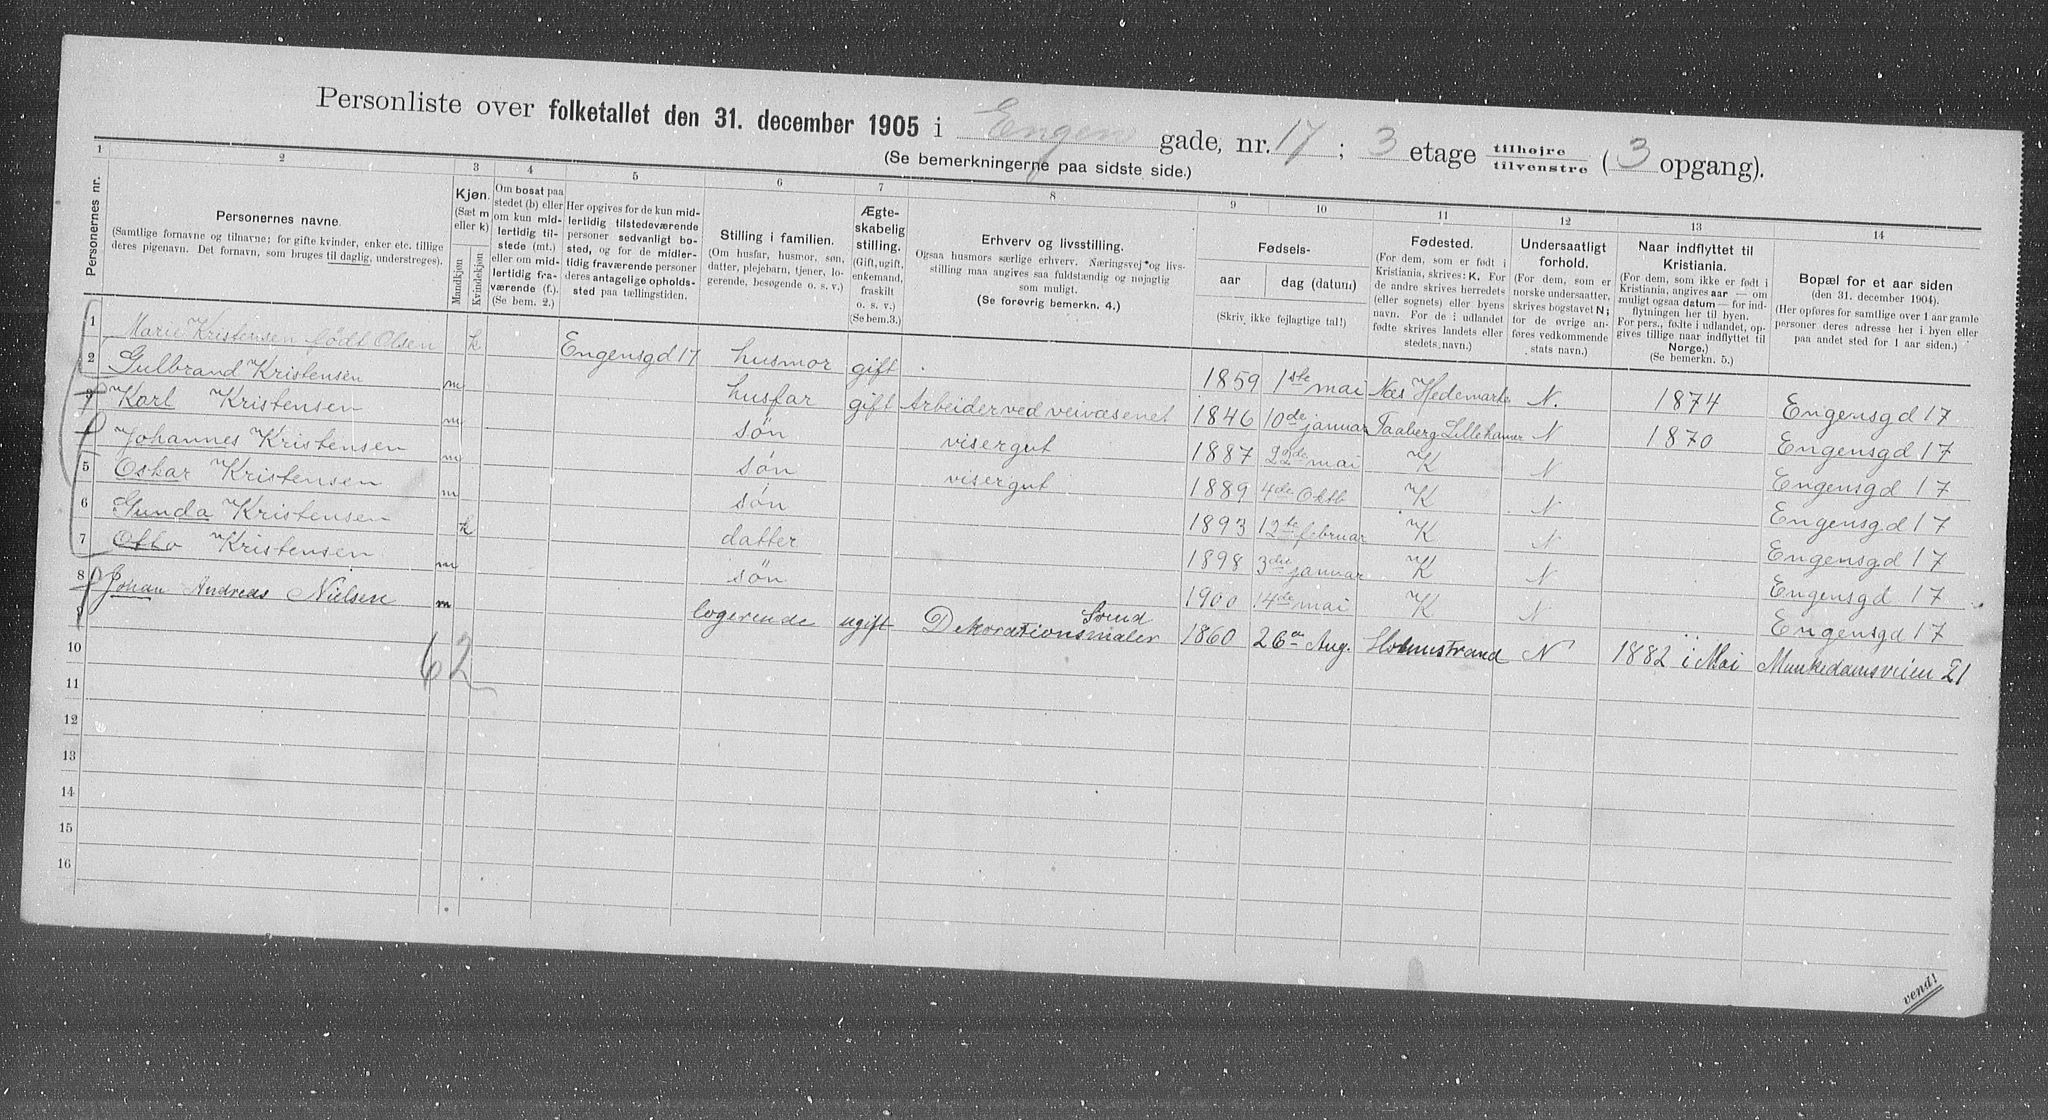 Personliste over folketallet den 31. december 1905 i Engens gade, nr. 17; 3 etage tilhøjre / tilvenstre (3 opgang).
(Se bemerkningerne paa sidste side.)
1 2 3 4 5 6 7 8 9 10 11 12 13 14
Personernes nr.
Personernes navne.
(Samtlige fornavne og tilnavne; for gifte kvinder, enker etc. tillige
deres pigenavn. Det fornavn, som bruges til daglig, understreges).
Kjøn.
(Sæt m
eller k)
Mandkjøn
Kvindekjøn
Om bosat paa
stedet (b) eller
om kun mid-
lertidig til-
stede (mt.)
eller om mid-
lertidig fra-
værende (f.).
(Se bem. 2.)
Her opgives for de kun mid-
lertidig tilstedeværende
personer sedvanligt bo-
sted, og for de midler-
tidig fraværende personer
deres antagelige opholds-
sted paa tællingstiden.
Stilling i familien.
(Om husfar, husmor, søn,
datter, plejebarn, tjener, lo-
gerende, besøgende o. s. v.)
Ægte-
skabelig
stilling.
(Gift, ugift,
enkemand,
fraskilt
o. s. v.)
(Se bem.3.)
Erhverv og livsstilling.
Ogsaa husmors særlige erhverv. Næringsvej og livs-
stilling maa angives saa fuldstændig og nøjagtig
som muligt.
(Se forøvrig bemerkn. 4.)
Fødsels-
aar
dag (datum)
(Skriv ikke fejlagtige tal!)
Fødested.
(For dem, som er født i
Kristiania, skrives: K. For
de andre skrives herredets
(eller sognets) eller byens
navn. For de i udlandet
fødte skrives landets eller
stedets navn.)
Undersaatligt
forhold.
(For dem, som er
norske undersaatter,
skrives bogstavet N;
for de øvrige an-
føres vedkommende
stats navn.)
Naar indflyttet til
Kristiania.
(For dem, som ikke er født i
Kristiania, angives aar — om
muligt ogsaa datum — for ind-
flytningen her til byen.
For pers., fødte i udlandet, op-
gives tillige naar indflyttet til
Norge.)
(Se bemerkn. 5.)
Bopæl for et aar siden
(den 31. december 1904).
(Her opføres for samtlige over 1 aar gamle
personer deres adresse her i byen eller
paa andet sted for 1 aar siden.)
1 Marie Kristensen født Olsen k Engensgd 17 husmor gift 1859 1ste mai Næs Hedemarken N. 1874 Engensgd 17
2 Gulbrand Kristensen m husfar gift Arbeider ved veivæsenet 1846 10de januar Faaberg Lillehamer N 1870 Engensgd 17
3 Karl Kristensen m søn visergut 1887 22de mai K N Engensgd 17
Johannes Kristensen m søn visergut 1889 4de Oktb K N Engensgd 17
5 Oskar Kristensen m søn 1893 12te februar K N Engensgd 17
6 Gunda Kristensen k datter 1898 3die januar K N Engensgd 17
7 Otto Kristensen m søn 1900 14de mai K N Engensgd 17
8 Johan Andreas Nielsen m logerende ugift Dekorationsmaler Svend 1860 26de Aug. Holmestrand N 1882 i Mai Munkedamsveien 21
9
10
62
11
12
13
14
15
16
vend!